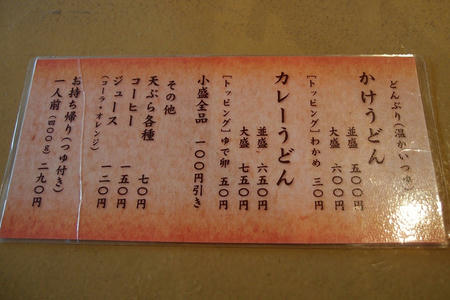 どんぶり(温かいつゆ)
かけうどん
並盛 五〇〇円
大盛 六〇〇円
[トッピング]わかめ 三〇円
カレーうどん
並盛 六五〇円
大盛 七五〇円
[トッピング]ゆで卵 五〇円
小盛全品 一〇〇円引き
その他
天ぷら各種 七〇円
コーヒー 一五〇円
ジュース 一二〇円
(コーラ・オレンジ)
お持ち帰り(つゆ付き)
一人前(四〇〇g)二九〇円